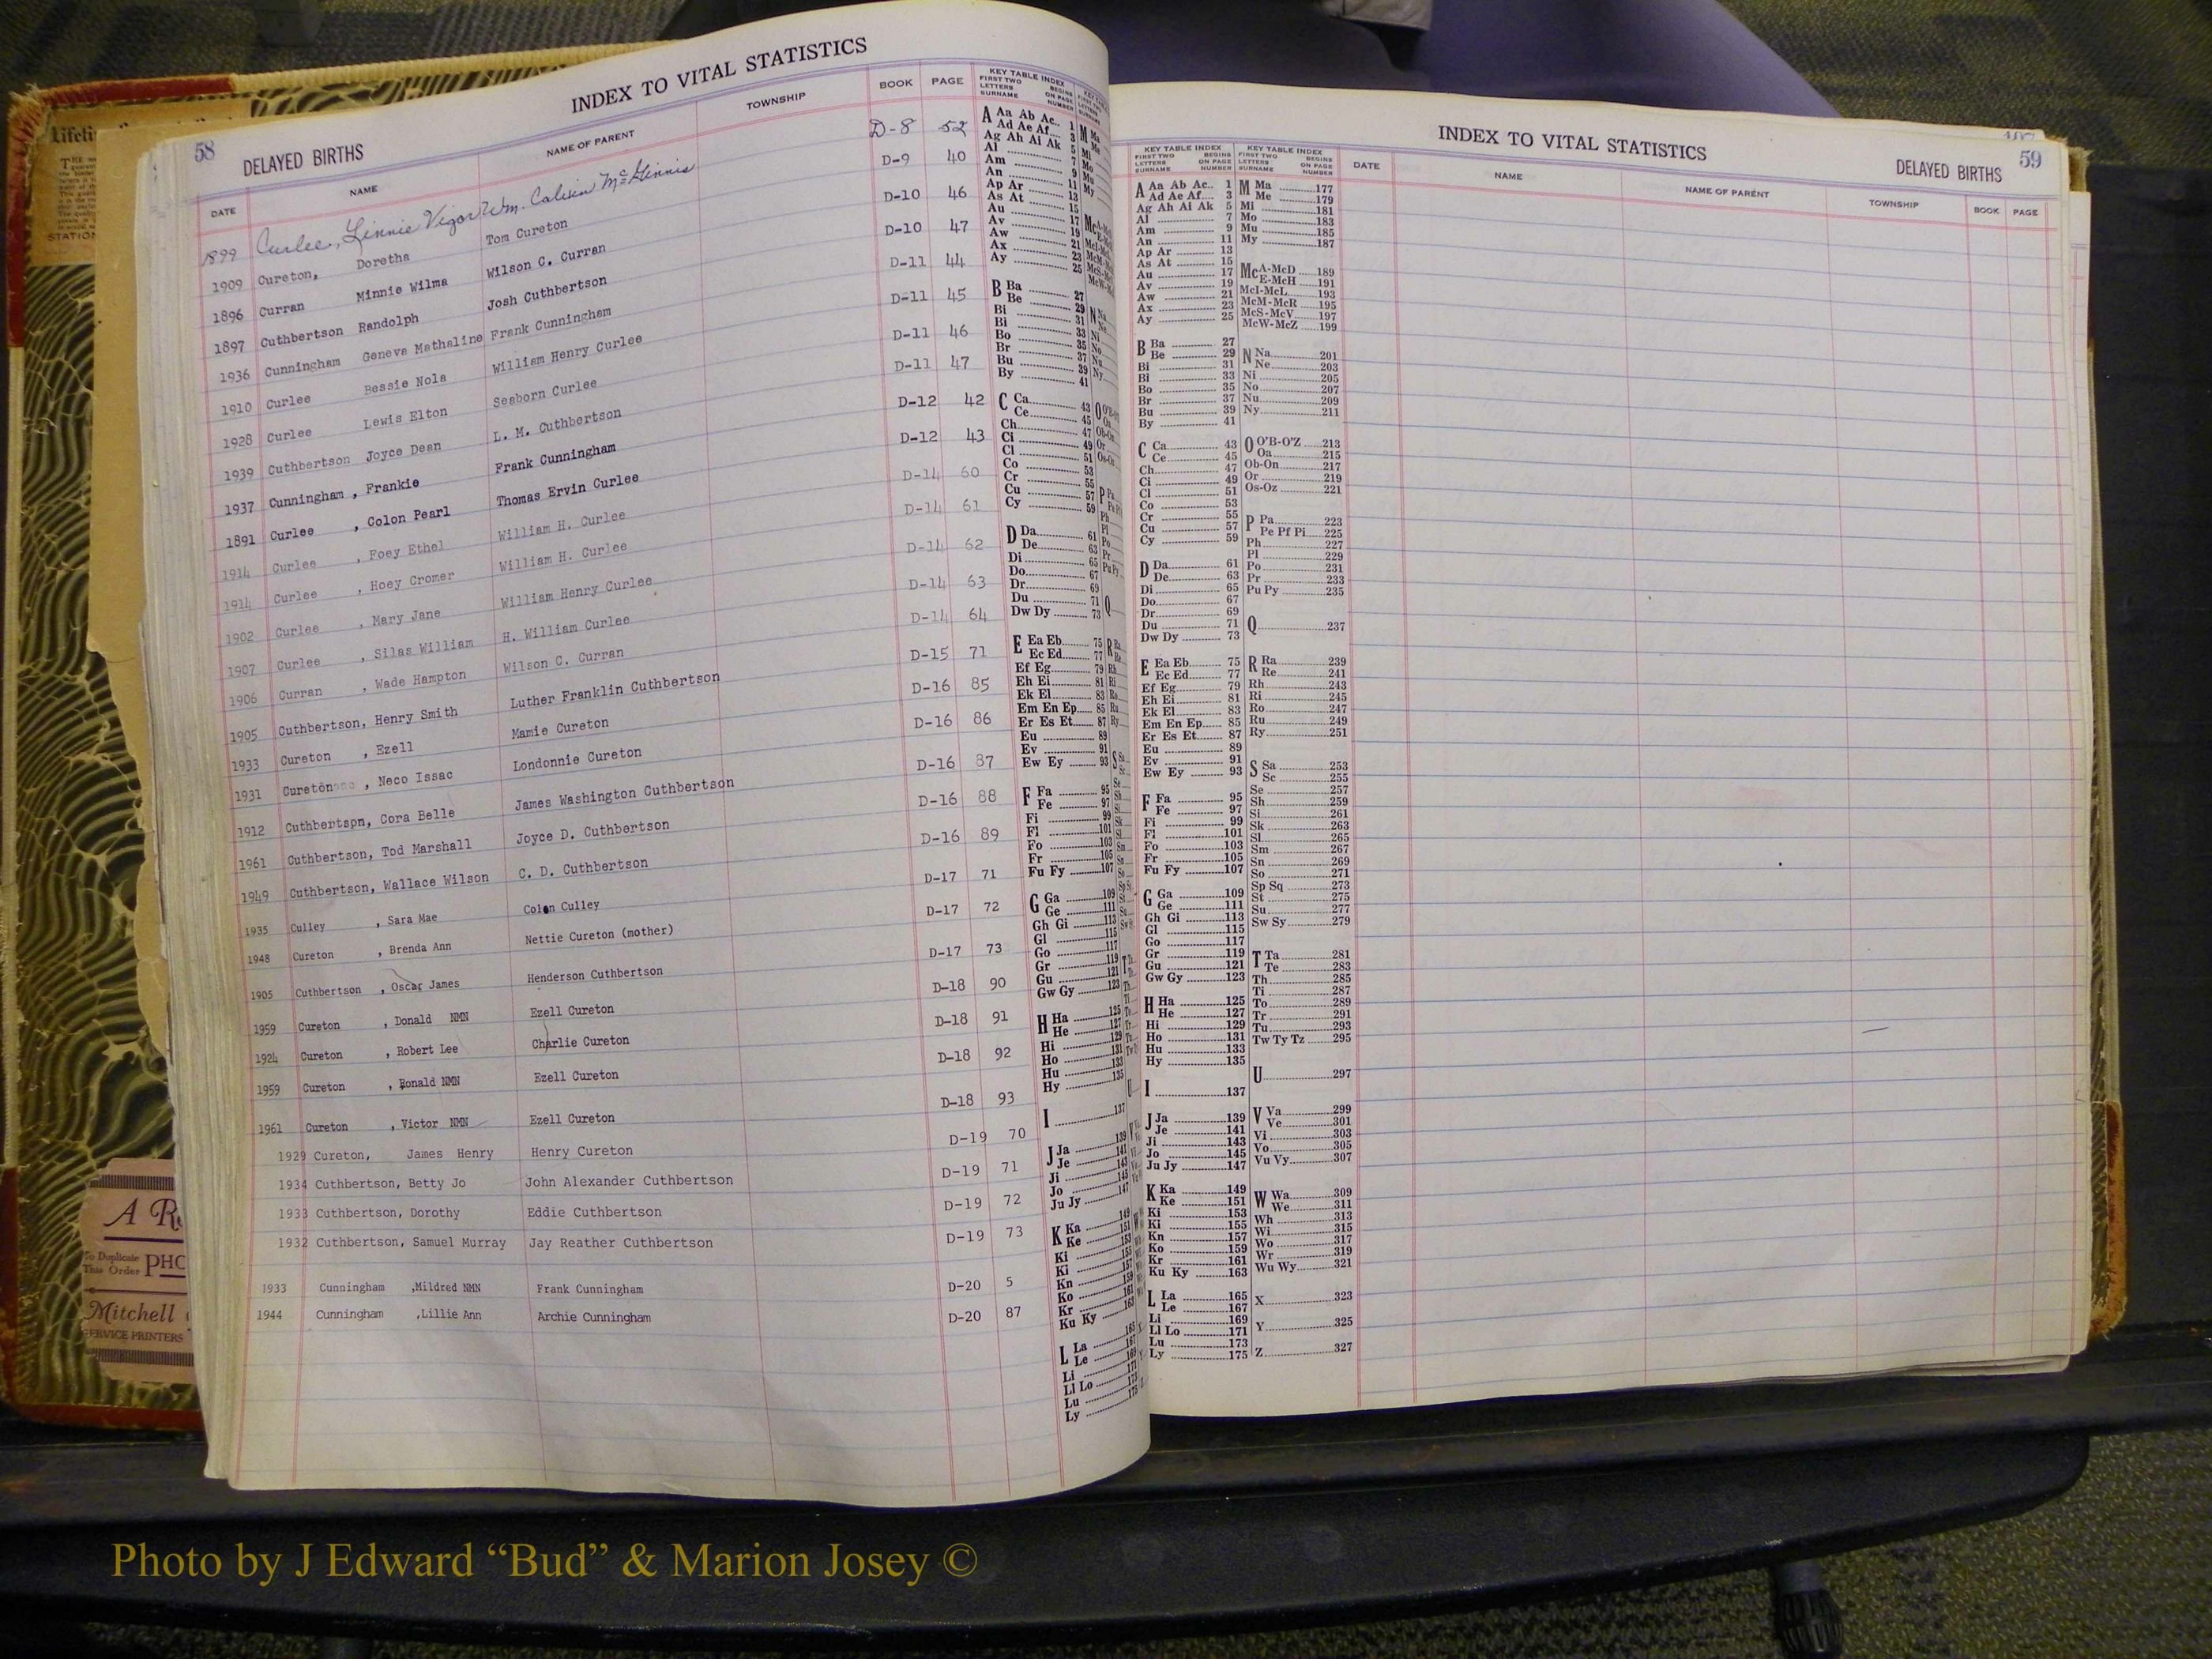 58
DELAYED BIRTHS
INDEX TO VITAL STATISTICS
DATE NAME NAME OF PARENT TOWNSHIP BOOK PAGE
1899 Curlee, Linnie Vigor Wm. Calvin McGinnis D-8 52
1909 Cureton, Doretha Tom Cureton D-9 40
1896 Curran Minnie Wilma Wilson C. Curran D-10 46
1897 Cuthbertson Randolph Josh Cuthbertson D-10 47
1936 Cunningham Geneva Mathaline Frank Cunningham D-11 44
1910 Curlee Bessie Nola William Henry Curlee D-11 45
1928 Curlee Lewis Elton Seaborn Curlee D-11 46
1939 Cuthbertson Joyce Dean L. M. Cuthbertson D-11 47
1937 Cunningham , Frankie Frank Cunningham D-12 42
1891 Curlee , Colon Pearl Thomas Ervin Curlee D-12 43
1914 Curlee , Foey Ethel William H. Curlee D-14 60
1914 Curlee , Hoey Cromer William H. Curlee D-14 61
1902 Curlee , Mary Jane William Henry Curlee D-14 62
1907 Curlee , Silas William H. William Curlee D-14 63
1906 Curran , Wade Hampton Wilson C. Curran D-14 64
1905 Cuthbertson, Henry Smith Luther Franklin Cuthbertson D-15 71
1933 Cureton , Ezell Mamie Cureton D-16 85
1931 Cureton , Neco Issac Londonnie Cureton D-16 86
1912 Cuthbertspn, Cora Belle James Washington Cuthbertson D-16 87
1961 Cuthbertson, Tod Marshall Joyce D. Cuthbertson D-16 88
1949 Cuthbertson, Wallace Wilson C. D. Cuthbertson D-16 89
1935 Culley , Sara Mae Colon Culley D-17 71
1948 Cureton , Brenda Ann Nettie Cureton (mother) D-17 72
1905 Cuthbertson , Oscar James Henderson Cuthbertson D-17 73
1959 Cureton , Donald NMN Ezell Cureton D-18 90
1924 Cureton , Robert Lee Charlie Cureton D-18 91
1959 Cureton , Ronald NMN Ezell Cureton D-18 92
1961 Cureton , Victor NMN Ezell Cureton D-18 93
1929 Cureton, James Henry Henry Cureton D-19 70
1934 Cuthbertson, Betty Jo John Alexander Cuthbertson D-19 71
1933 Cuthbertson, Dorothy Eddie Cuthbertson D-19 72
1932 Cuthbertson, Samuel Murray Jay Reather Cuthbertson D-19 73
1933 Cunningham ,Mildred NMN Frank Cunningham D-20 5
1944 Cunningham ,Lillie Ann Archie Cunningham D-20 87
KEY TABLE INDEX
FIRST TWO LETTERS SURNAME BEGINS ON PAGE NUMBER
A Aa Ab Ac.. 1
Ad Ae Af.... 3
Ag Ah Ai Ak 5
Al 7
Am 9
An 11
Ap Ar 13
As At 15
Au 17
Av 19
Aw 21
Ax 23
Ay 25
B Ba 27
Be 29
Bi 31
Bi 33
Bo 35
Br 37
Bu 39
By 41
C Ca 43
Ce 45
Ch 47
Ci 49
Cl 51
Co 53
Cr 55
Cu 57
Cy 59
D Da 61
De 63
Di 65
Do 67
Dr 69
Du 71
Dw Dy 73
E Ea Eb 75
Ec Ed 77
Ef Eg 79
Eh Ei 81
Ek El 83
Em En Ep 85
Er Es Et 87
Eu 89
Ev 91
Ew Ey 93
F Fa 95
Fe 97
Fi 99
Fl 101
Fo 103
Fr 105
Fu Fy 107
G Ga 109
Ge 111
Gh Gi 113
Gl 115
Go 117
Gr 119
Gu 121
Gw Gy 123
H Ha 125
He 127
Hi 129
Ho 131
Hu 133
Hy 135
I 137
J Ja 139
Je 141
Ji 143
Jo 145
Ju Jy 147
K Ka 149
Ke 151
Ki 153
Ki 155
Kn 157
Ko 159
Kr 161
Ku Ky 163
L La 165
Le 167
Li 169
Ll Lo 171
Lu 173
Ly 175
INDEX TO VITAL STATISTICS
DELAYED BIRTHS
59
KEY TABLE INDEX KEY TABLE INDEX
FIRST TWO LETTERS SURNAME BEGINS ON PAGE NUMBER FIRST TWO LETTERS SURNAME BEGINS ON PAGE NUMBER
DATE NAME NAME OF PARENT TOWNSHIP BOOK PAGE
A Aa Ab Ac.. 1
Ad Ae Af.... 3
Ag Ah Ai Ak 5
Al 7
Am 9
An 11
Ap Ar 13
As At 15
Au 17
Av 19
Aw 21
Ax 23
Ay 25
B Ba 27
Be 29
Bi 31
Bi 33
Bo 35
Br 37
Bu 39
By 41
C Ca 43
Ce 45
Ch 47
Ci 49
Cl 51
Co 53
Cr 55
Cu 57
Cy 59
D Da 61
De 63
Di 65
Do 67
Dr 69
Du 71
Dw Dy 73
E Ea Eb 75
Ec Ed 77
Ef Eg 79
Eh Ei 81
Ek El 83
Em En Ep 85
Er Es Et 87
Eu 89
Ev 91
Ew Ey 93
F Fa 95
Fe 97
Fi 99
Fl 101
Fo 103
Fr 105
Fu Fy 107
G Ga 109
Ge 111
Gh Gi 113
Gl 115
Go 117
Gr 119
Gu 121
Gw Gy 123
H Ha 125
He 127
Hi 129
Ho 131
Hu 133
Hy 135
I 137
J Ja 139
Je 141
Ji 143
Jo 145
Ju Jy 147
K Ka 149
Ke 151
Ki 153
Ki 155
Kn 157
Ko 159
Kr 161
Ku Ky 163
L La 165
Le 167
Li 169
Ll Lo 171
Lu 173
Ly 175
M Ma 177
Me 179
Mi 181
Mo 183
Mu 185
My 187
McA-McD 189
E-McH 191
McI-McL 193
McM-McR 195
McS-McV 197
McW-McZ 199
N Na 201
Ne 203
Ni 205
No 207
Nu 209
Ny 211
O O'B-O'Z 213
Oa 215
Ob-On 217
Or 219
Os-Oz 221
P Pa 223
Pe Pf Pi 225
Ph 227
Pl 229
Po 231
Pr 233
Pu Py 235
Q 237
R Ra 239
Re 241
Rh 243
Ri 245
Ro 247
Ru 249
Ry 251
S Sa 253
Sc 255
Se 257
Sh 259
Si 261
Sk 263
Sl 265
Sm 267
Sn 269
So 271
Sp Sq 273
St 275
Su 277
Sw Sy 279
T Ta 281
Te 283
Th 285
Ti 287
To 289
Tr 291
Tu 293
Tw Ty Tz 295
U 297
V Va 299
Ve 301
Vi 303
Vo 305
Vu Vy 307
W Wa 309
We 311
Wh 313
Wi 315
Wo 317
Wr 319
Wu Wy 321
X 323
Y 325
Z 327
To Duplicate This Order
Mitchell
SERVICE PRINTERS
Photo by J Edward “Bud” & Marion Josey ©